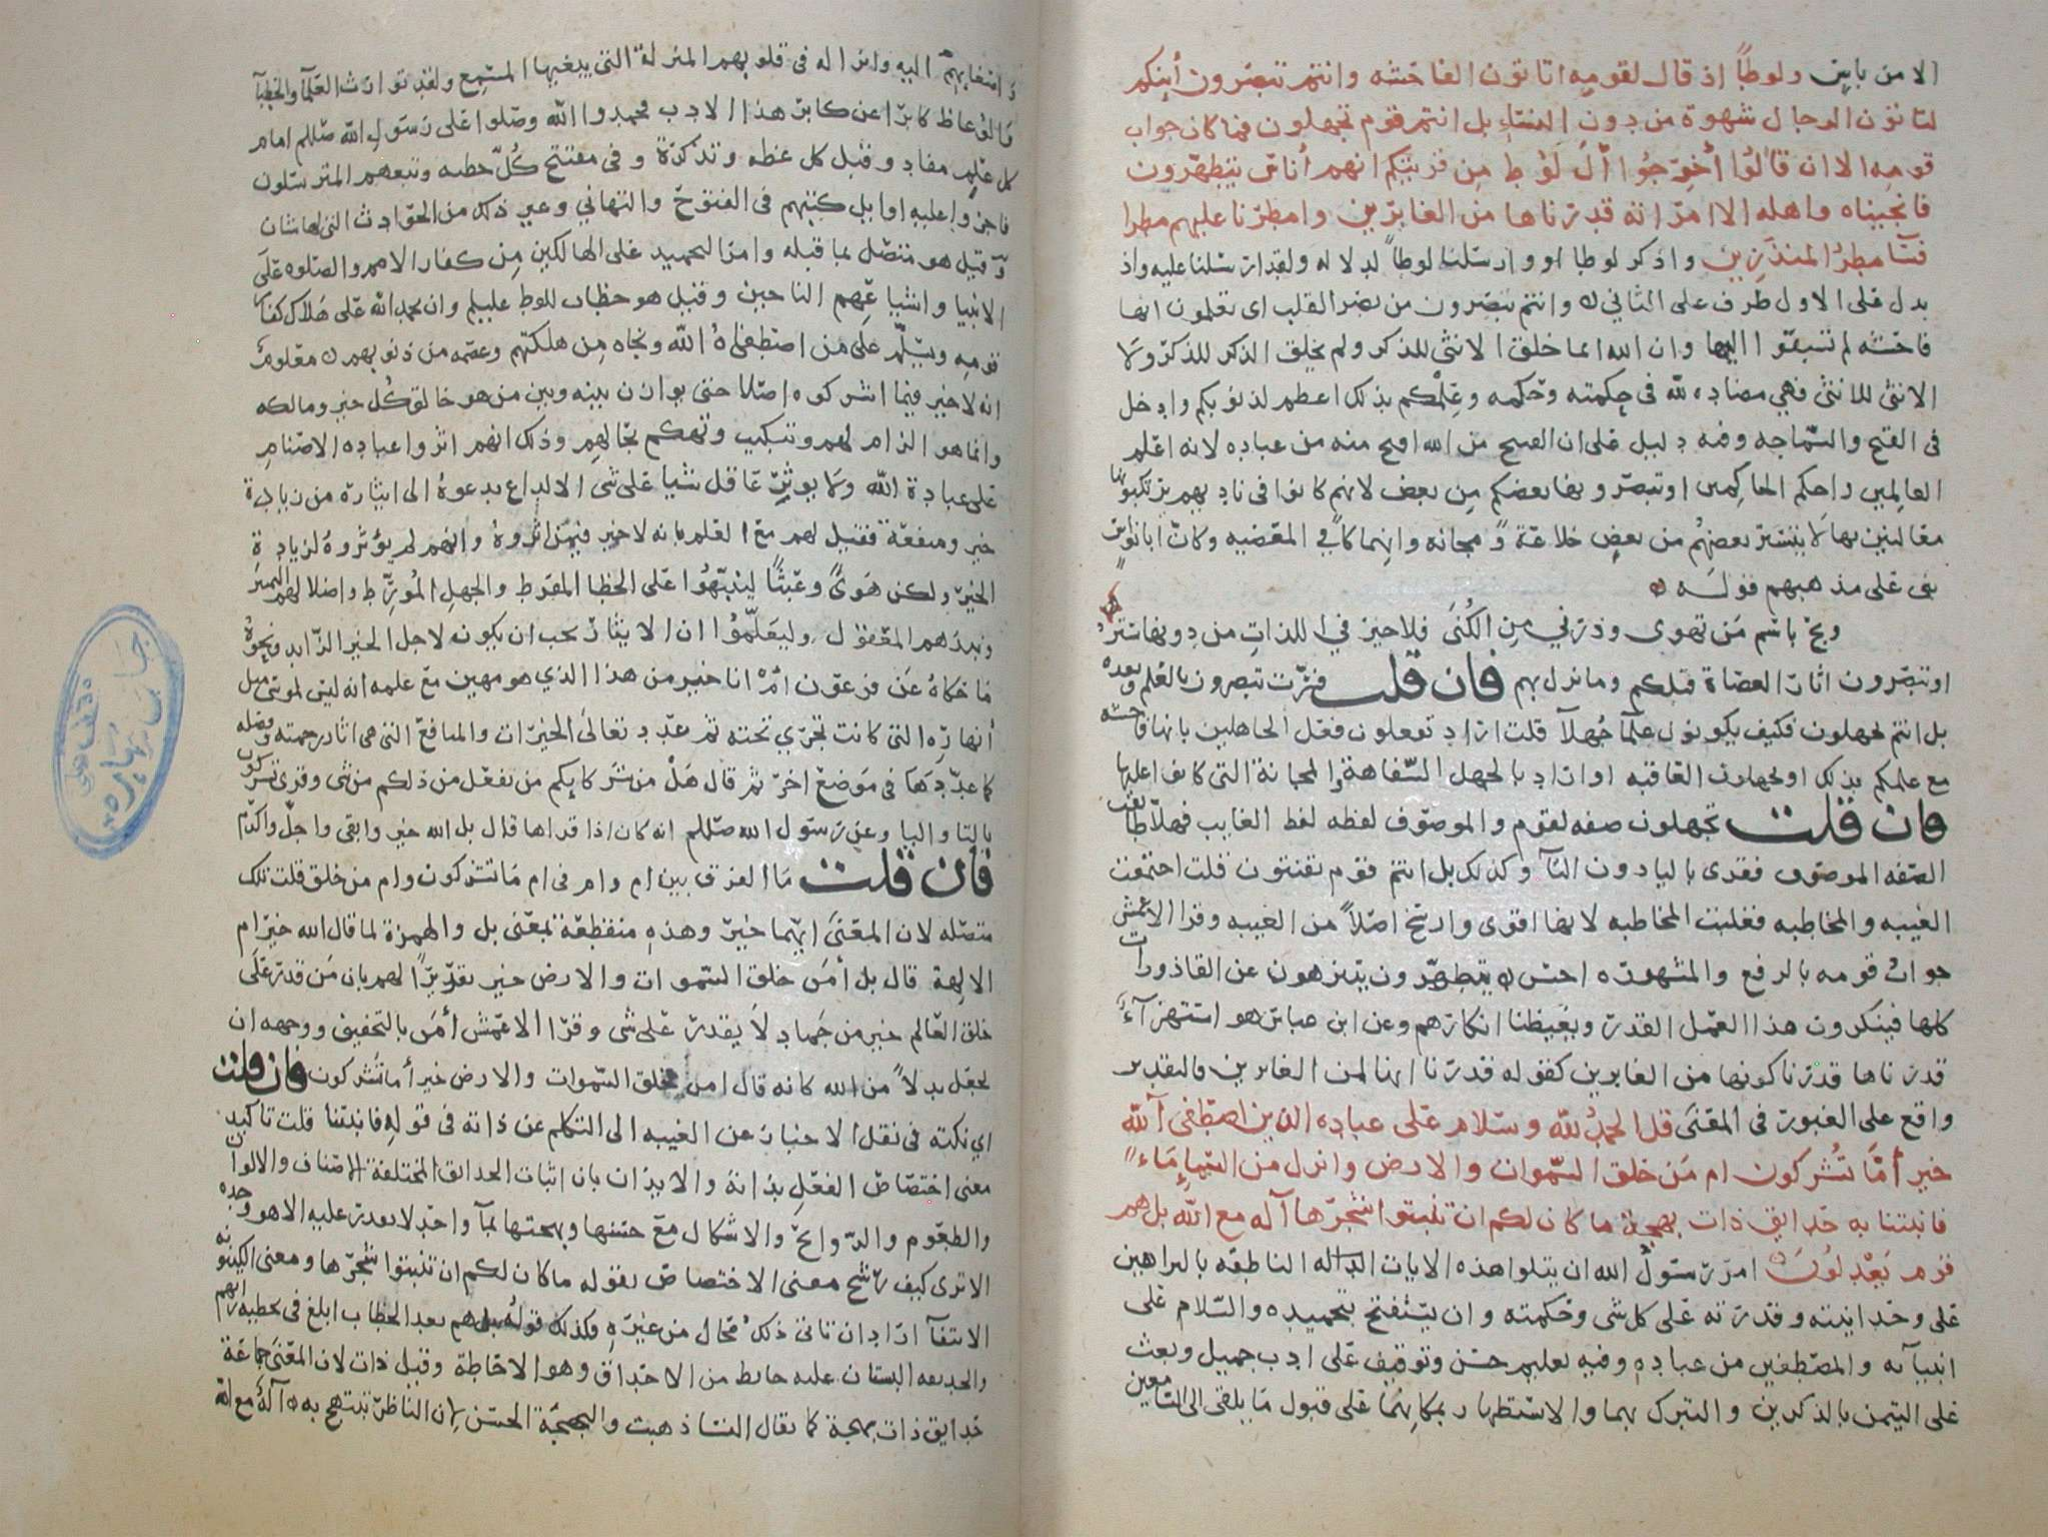 الا من بابين ولوطاً اذ قال لقومه اتاتون الفاحشه وانتم تبصرون أينكم
لتاتون الرجال شهوة من دون النسآءِ بل انتم قوم تجهلون فما كان جواب
قومه الا ان قالُوا أخرِجُوا آلَ لوُطٍ مِن قريتكم انهم أناسٌ يتطهّرون
فانجيناه واهله الا امرَاته قدرناها من الغابرِين وامطرنا عليهم مطرا
فسآ مطرُ المنذَرِين واذكر لوطا او وارسلنا لوطاً لدلاله ولقد ارسلنا عليه واذ
بدل على الاول ظرف على الثاني ٥ وانتم تبصرون من بصر القلب اى تعلمون انها
فاحشه لم تسبقوا اليها وان الله انما خلق الانثى للذكر ولم يخلق الذكر للذكر ولا
الانثى للانثى فهي مضاده لله في حِكمته وحكمه وعِلمُكم بذلك اعظم لذنوبكم وادخل
فى القبح والسّماجه وفيه دليل على ان القبيح من الله اقبح منه من عباده لانه اعلم
العالِمين واحكم الحاكِمين او تبصرونها بعضكم مِن بعض لانهم كانوا فى ناديهم يرتكبونها
معالنين بها لا يتستر بعضهُم من بعضٍ خلاعَة ومجانه وانهماكاً في المعصيه وكانّ ابا نواس
بنى على مذهبهم قوله ٥
وبح باسم مَن تهوى وذرني مِن الكُنىَ فلا خير في اللذاتِ من دونها سترُ
او تبصّرون اثار العصاة قبلكم وما نزل بهم فان قلت فسرت تبصرون بالعلم وبعده
بل انتم تجهلون فكيف يكونون علمآ جُهلآ قلت اراد تفعلون فعل الجاهلين بانها فاحشه
مع علمكم بذلك او تجهلون العاقبه او اراد بالجهل السّفاهة والمجانة التى كانوا عليها
فان قلت تجهلون صفه لقوم والموصوف لفظه لفظ الغايب فهلا طابقت
الصّفه الموصوف فقرى باليا دون التآ وكذلك بل انتم قوم تفتنون قلت اجتمعت
الغيبه والمخاطبه فغلبت المخاطبه لانها اقوى وارسَخ اصلاً من الغيبه وقرا الاعمش
جوابُ قومه بالرفع والمشهوره احسن ٥ يتطهّرون يتنزهون عن القاذورات
كلها فينكرون هذا العمَل القذر ويغيظنا انكارهم وعن ابن عباس هو استهزآءٌ
قدرناها قدرنا كونها من الغابرين كقوله قدرنا انها لمن الغابرين فالتقدير
واقع على الغبور فى المعنَى قل الحمدُ لله وسَلام على عباده الذين اصطفى آلله
خير أمّا تُشركون ام مَن خلق السّموات والارض وانزل من السّماءِ مَاءً
فانبتنا به حدايق ذات بهجة ما كان لكم ان تنبتوا شجرها آله مع الله بل هم
قوم يَعْدِلُونَ امرَ رسولُ الله ان يتلوا هذه الايات الداله الناطقه بالبراهين
على وحدانيته وقدرته على كل شى وحكمته وان يستفتح بتحميده والسّلام على
انبيآئه والمصطفين من عباده وفيه تعليم حسَن وتوقيف على ادب جميل وبعث
على التيمن بالذكرين والتبرك بهما والاستظهار بمكانهمَا على قبول مَا يلقى الى السّامعين
واصغايهم اليه وانزاله فى قلوبهم المنزلة التى يبغيها المستمِع ولقد توارَث العُلمآ والخطبآ
والوعاظ كابرًا عن كابر هذا الادب فحمدوا اللّه وصَلوا على رسَول الله صللم امام
كل عِلمٍ مفاد وقبل كل عظه وتذكرة وفى مفتتح كُلّ خطبه وتبعهم المترسلون
فاجروا عليه اوايل كتبهم فى الفتوح والتهاني وغير ذلك من الحوادث التى لها شان
وقيل هو متصّل بما قبله وامر بالتحميد على الهالكين مِن كفار الامم والصّلوه على
الانبيا واشياعِهم الناجين وقيل هو خطاب للوط عليلم وان يحمد اللّه على هَلاك كفار
قومِه ويسَلّم على مَن اصطفاهُ اللّه ونجاه مِن هلكتهم وعصمه من ذنوبهم ٥ معلوم
انه لا خير فيما اشركوه اصلا حتى يوازن بينه وبين من هو خالق كُل خير ومالكه
وانما هو الزام لهم وتبكيب وتهكم بحالهِم وذلك انهم اثروا عباده الاصنامِ
على عبادة اللّه ولا يوثِرّ عاقل شيا على شى الا لداع يدعوهُ الى ايثاره من زيادة
خير ومنفعة فقيل لهم مع العلم بانه لا خير فيمَا اثروهُ وانهم لم يؤثروهُ لزيادة
الخير ولكن هوًى وعَبثًا لينبّهُوا على الخطا المفرط والجهلِ المُورّط واضلالهم التمييز
ونبذهم المعقول وليعَلَمُوا ان الايثارَ يجب ان يكون لاجل الخير الزّايد ونحوهُ
ما حكاهُ عن فرعون أمْ انا خير من هذا الذي هو مهين مع علمه انه ليس لموسى مثل
أنهارِه التى كانت تجري تحته ثم عدّد تعالى الخيرَات والمنافع التى هى اثار رحمته وفضله
كما عدّدَها فى مَوضع اخرّ ثم قال هَل من شركايكم من يفعَل من ذلكم من شى وقرى تشركون
بالتا واليا وعن رسَول الله صللم انه كان اذا قراها قال بل الله خير وابقى واجلّ واكرَم
فان قلت مَا الفرق بين ام وام فى ام مَا تشركون وام من خلق قلت تلك
متصله لان المعنىَ ايّهما خيرٌ وهذه منقطعة بمعنى بل والهمزة لما قال الله خير ام
الالهة قال بل أمَن خلق السّموات والارض خير تقريرًا لهم بان مَن قدر على
خلق العَالم خير من جَماد لا يقدر على شى وقرا الاعمش أمَن بالتخفيف ووجهه ان
يجعَل بدلاً من الله كانه قال امن خلق السّموات والارض خير أما تشركون فان قلت
اى نكته فى نقل الاخبار عن الغيبه الى التكلم عن ذاته فى قوله فانبتنا قلت تاكيد
معنى اختصاص الفعل بذاته والايذان بان انبات الحدايق المختلفة الاصناف والالوان
والطعوم والرّوايح والاشكال مع حسنها وبهجتها بمآ واحد لا يقدر عليه الا هو وحده
الا ترى كيف رشّح معنى الاختصاص بقوله ما كان لكم ان تنبتوا شجرها ومعنى الكينونه
الانبغآ اراد ان تاتى ذلك مُحال من غيره وكذلك قوله بل هم بعد الخطاب ابلغ فى تخطيه رايهم
والحديقه البستان عليه حايط من الاحداق وهو الاحاطة وقيل ذات لان المعنَى جماعَة
حدايق ذات بهجة كما يقال النسا ذهبت والبهجَة الحسْن لان الناظر يبتهج به ٥ آلهٌ مع الله